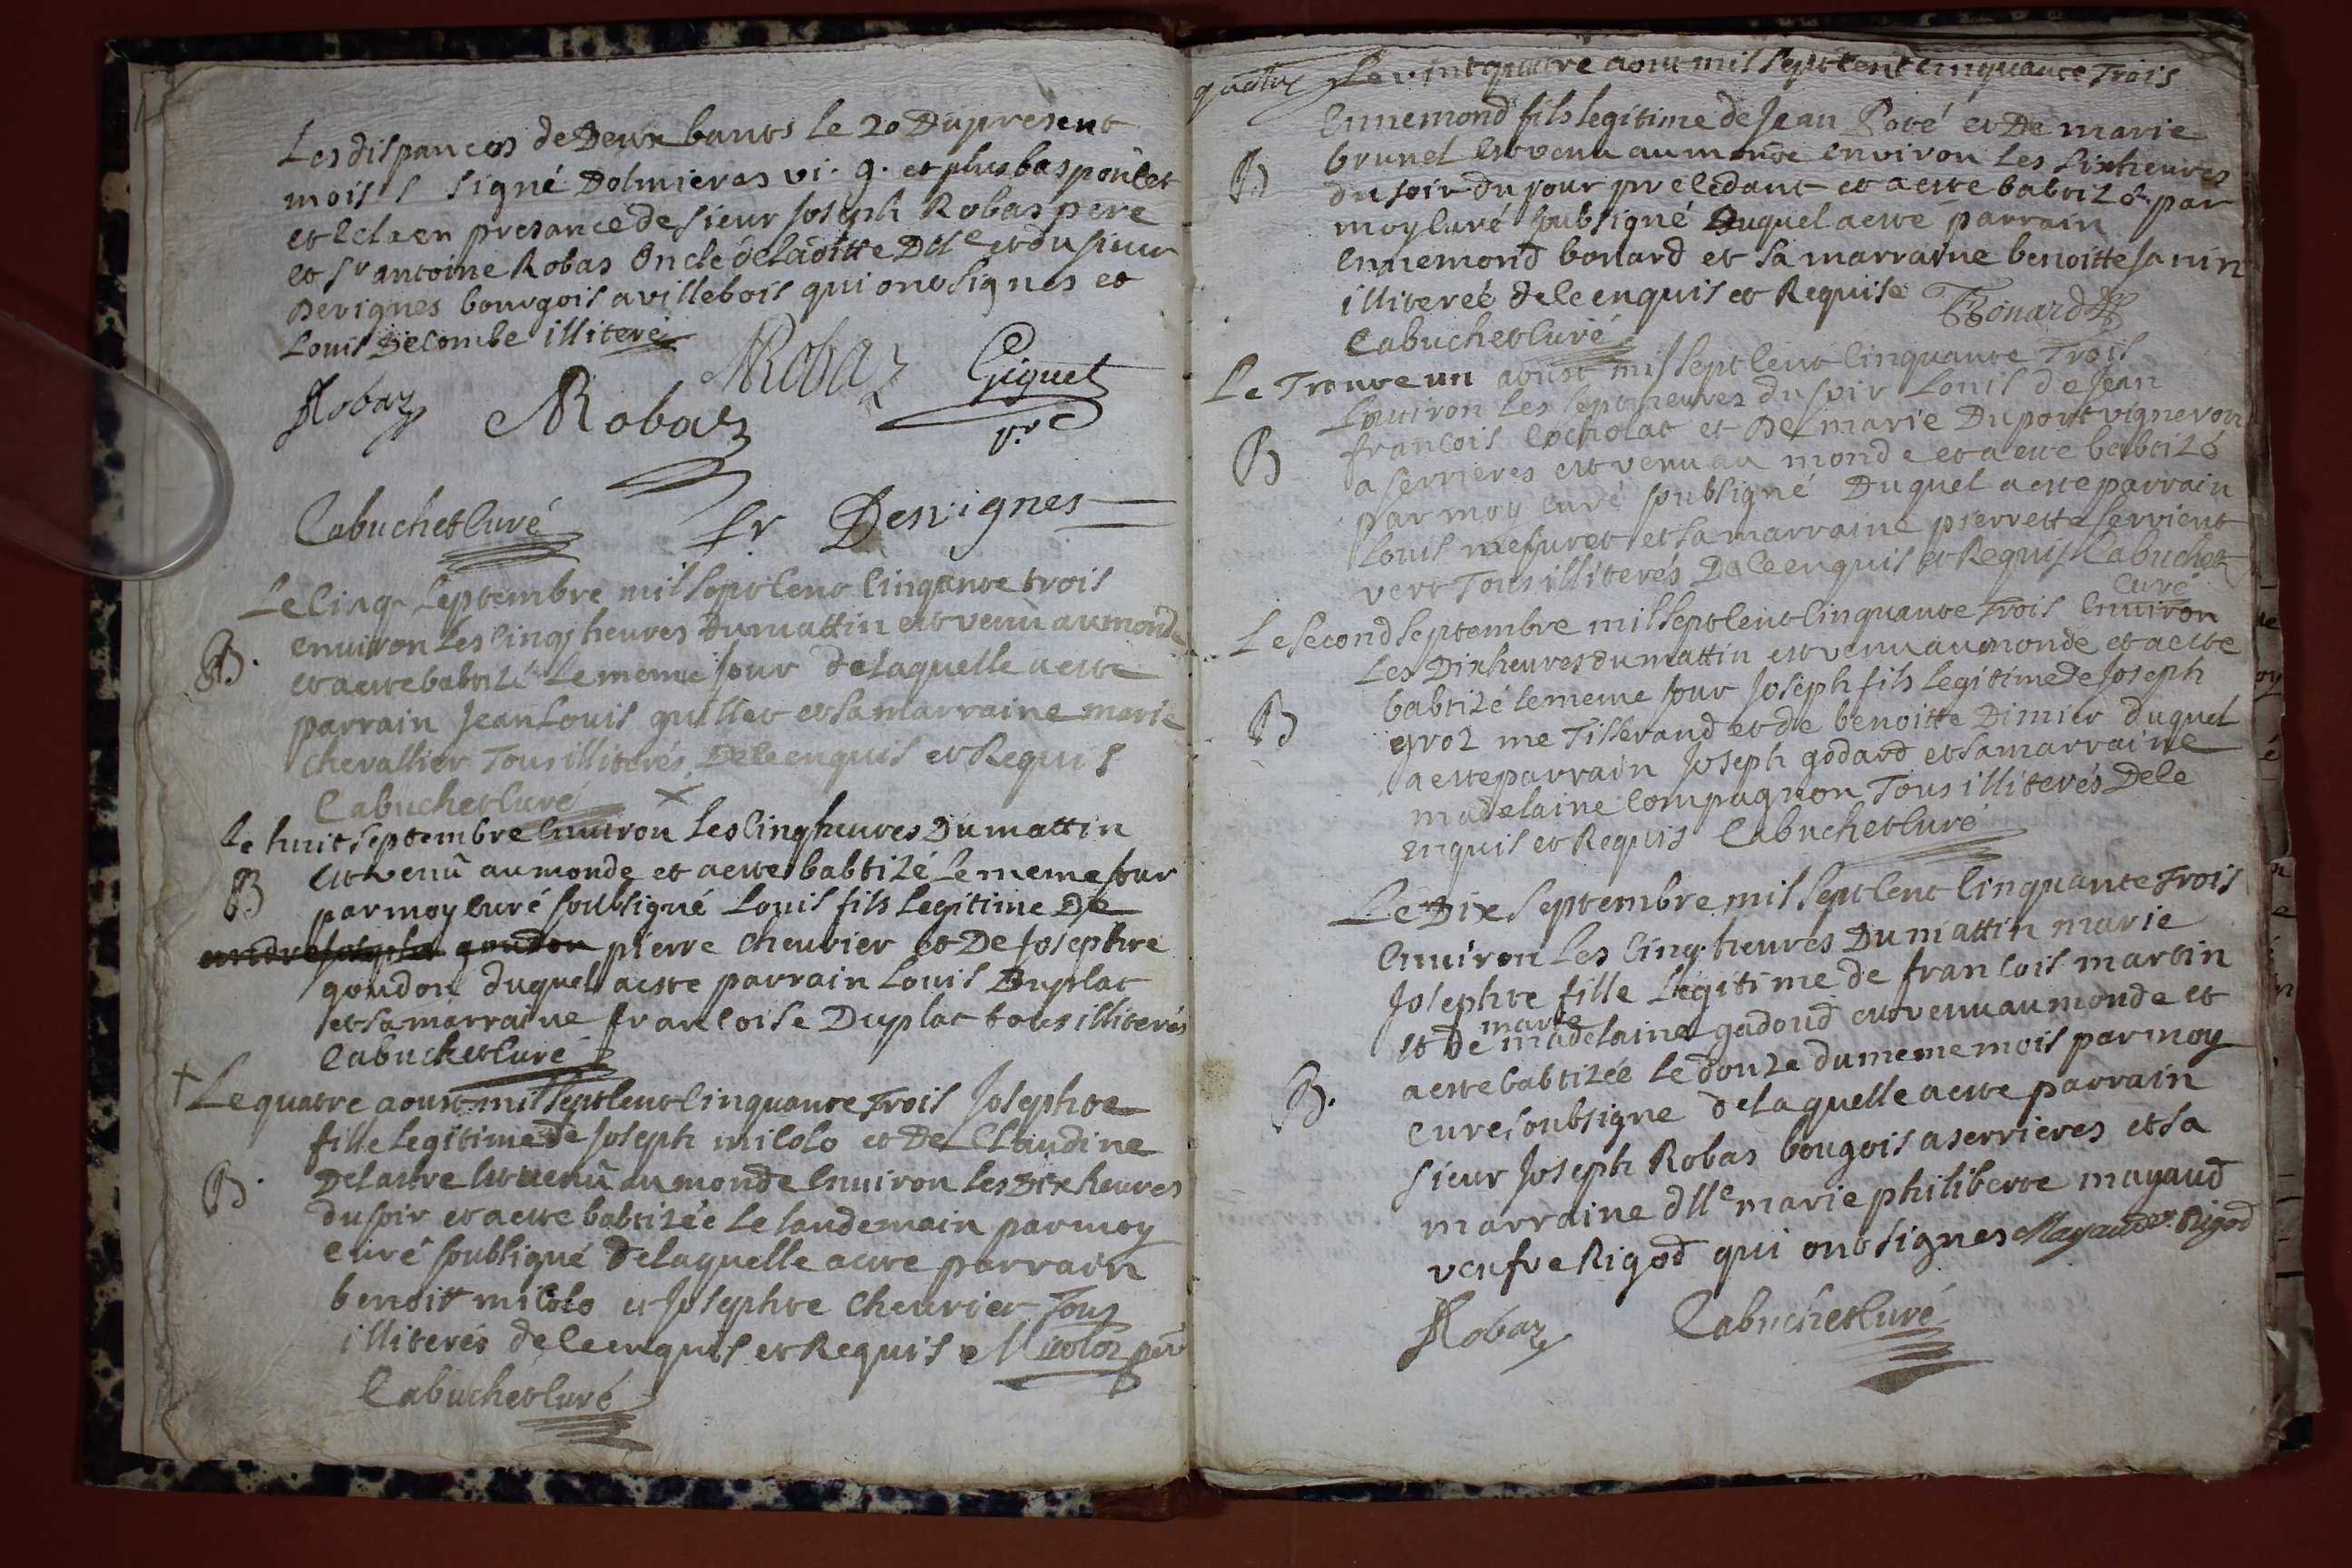 Les dispances de Deux bancs le 20 Du present
mois / signé Dolmieres vi. g. et plus bas poulet
et cela en presance de sieur Joseph Robas pere
et Sr antoine Robas Oncle de laditte Dlle et du sieur
Devignes bourgois a villebois qui ont signes et
Louis Decombe illiteré
Robaz Robaz Robaz Giguet
Cabuchet Curé fr Desvignes
Le cinq septembre mil sept cent cinqante trois
B. environ les cinq heures du mattin est venü au monde
et a este babtizé le meme jour de laquelle a este
parrain Jean Louis guillet et sa marraine marie
chevallier Tous illiterés De ce enquis et Requis
Cabuchet curé x
Le huit septembre Environ les cinq heures Du mattin
B est venü au monde et a este babtizé le meme jour
par moy curé soubsigné Louis fils legitime De
goudon pierre cheurier et De Josephte
goudon duquel a este parrain Louis Duplat
et sa marraine francoise Duplat tous illiterés
Cabuchet curé
+ Le quatre aoust mil sept cent cinquante Trois Josephte
fille legitime de Joseph micolo et De Claudine
B. Delastre est venü au monde Environ les Dix heures
du soir et a este babtizée le landemain par moy
curé soubsigné De laquelle a este parrain
benoitt micolo et Josephte cheurier Tous
illiterés de ce enquis et Requis Micoloz
Cabuchet Curé
quatre Le vint quatre aout mil sept cent cinquante Trois
Ennemond fils legitime de Jean Poté et De marie
B brunel est venu au monde environ les six heures
du soir du jour precedant et a este babtizé par
moy curé soubsigné Duquel a este parrain
Ennemond bonard et sa marraine benoitte Janin
illiterée de ce enquis et Requise Bonard
Cabuchet Curé
Le Trente un aoust mil sept cent cinquante Trois
Environ les sept heures du soir Louis de Jean
francois Cocholat et De marie Duport vigneron
B a serrieres est venu au monde et a este babtizé
par moy curé soubsigné Duquel a este parrain
Louis mesuret et sa marraine pierrette servient
vert Tous illiterés De ce enquis et Requis Cabuchet
curé
Le second septembre mil sept cent cinquante Trois Environ
Les Dix heures du mattin est venu au monde et a este
babtizé le meme jour Joseph fils legitime de Joseph
B groz me Tisserand et de benoitte Dimier duquel
a este parrain Joseph godard et sa marraine
madelaine Compagnon Tous illiterés De ce
enquis et Requis Cabuchet Curé
Le Dix septembre mil sept cent cinquante Trois
Environ les cinq heures Du mattin marie
Josephte fille legitime de francois martin
marie
et de madelaine gadoud est venu au monde et
B. a este babtizée le douze du meme mois par moy
curé soubsigne de laquelle a este parrain
sieur Joseph Robas bougois a serrieres et sa
marraine dlle marie philiberte mayaud
veufve Rigod qui ont signes Mayaud Rigod
Robaz Cabuchet Curé